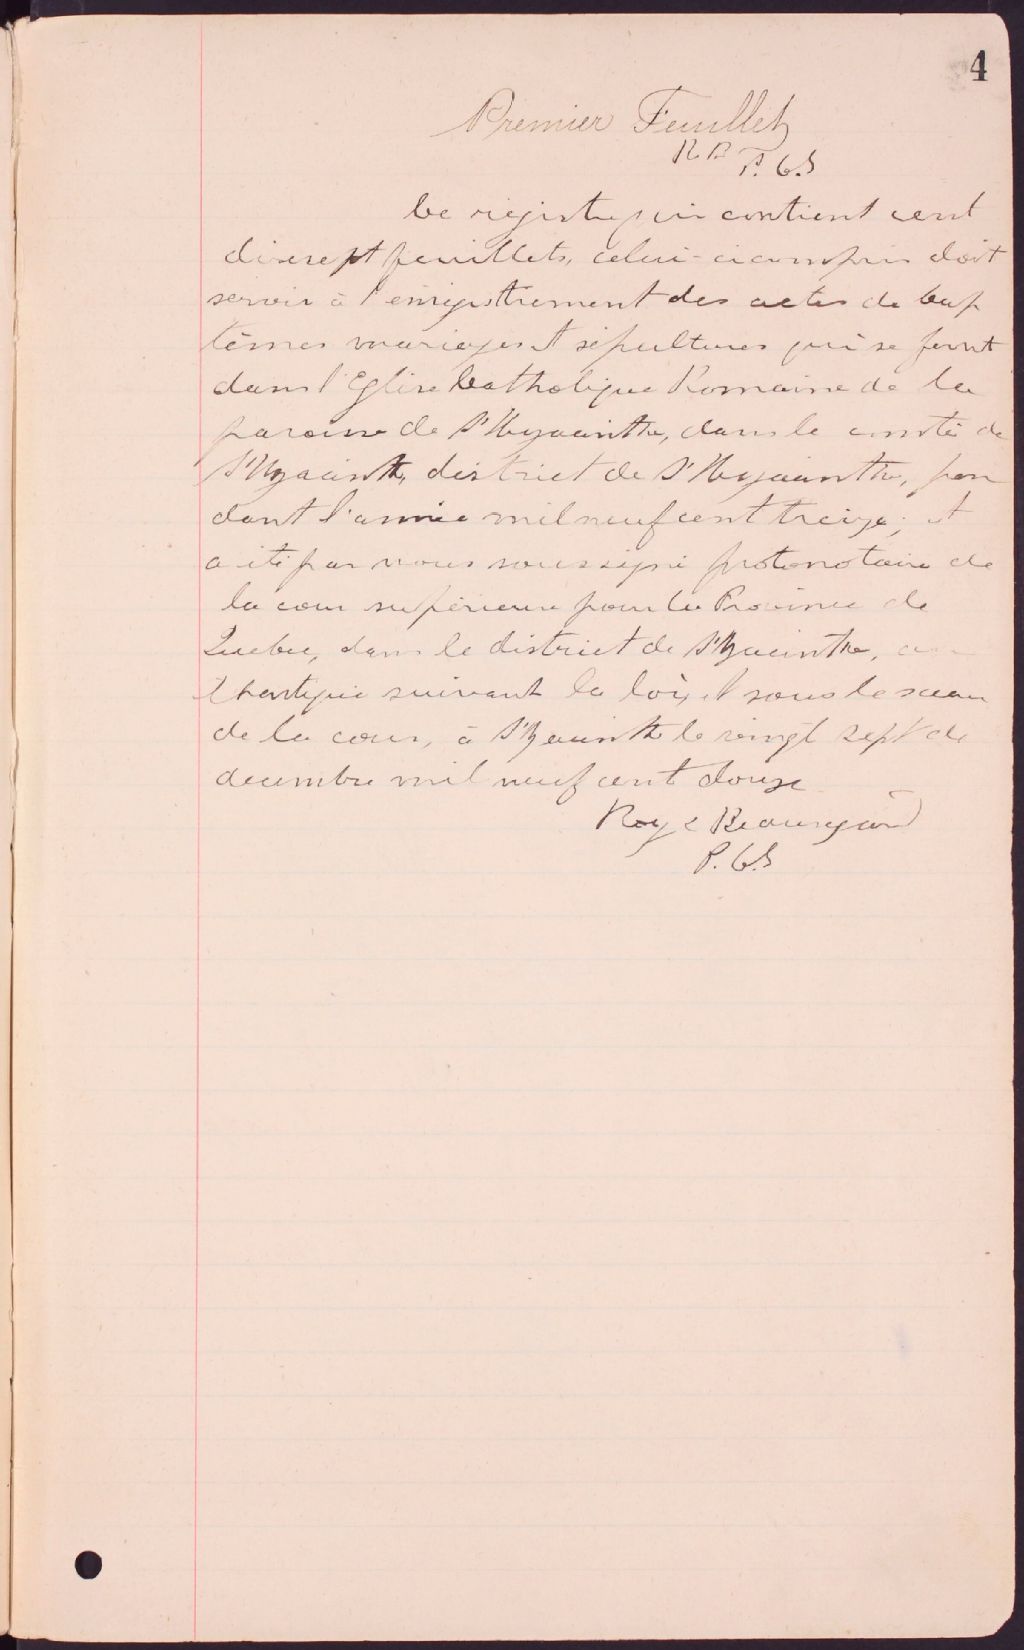 4
Premier Feuillet
R B P. C. S
Ce registre qui contient cent
dix sept feuillets, celui-ci compris doit
servir à l'enregistrement des actes de bap
têmes mariages et sépultures qui se feront
dans l'Eglise Catholique Romaine de la
paroisse de St Hyacinthe, dans le comté de
St Hyacinthe, district de St Hyacinthe, pen
dant l'année mil neuf cent treize; et
a été par nous soussigné protonotaire de
la cour supérieure pour la Province de
Quebec, dans le district de St Hyacinthe, au
thentiqué suivant la loi, et sous le sceau
de la cour, à St Hyacinthe le vingt sept de
decembre mil neuf cent douze
Roy & Beauregard
P. C. S